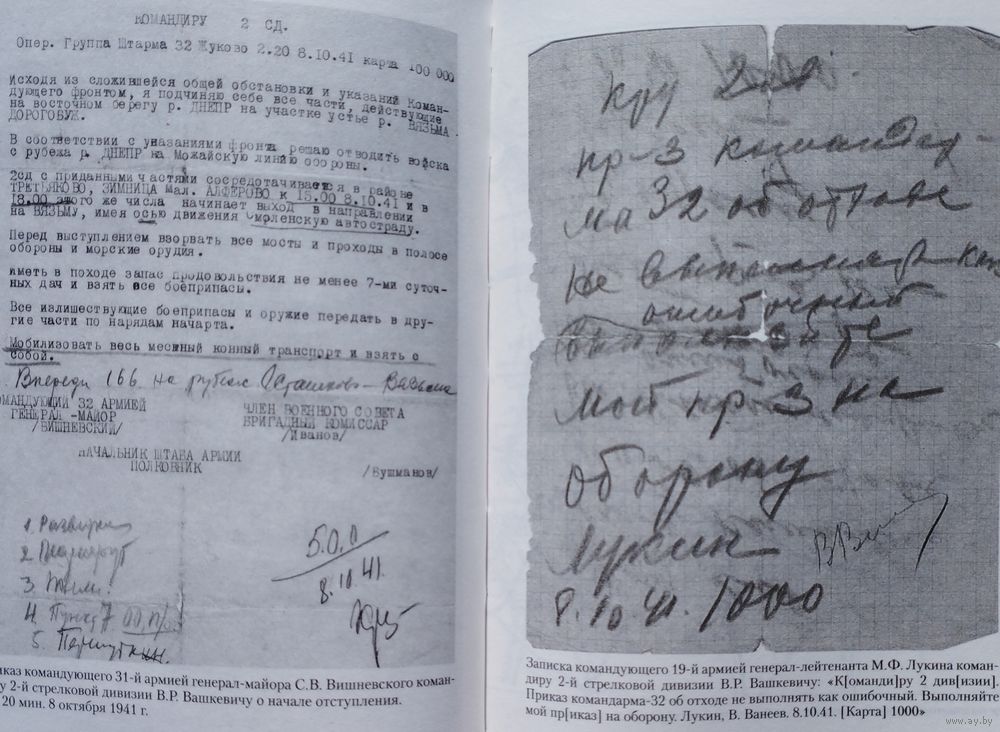 КОМАНДИРУ 2 СД.
Опер. Группа Штарма 32 Жуково 2.20 8.10.41 карта 100 000
Исходя из сложившейся общей обстановки и указаний Коман-
дующего фронтом, я подчиняю себе все части, действующие
на восточном берегу р. ДНЕПР на участке устье р. ВЯЗЬМА
ДОРОГОБУЖ.
В соответствии с указаниями фронта решаю отводить войска
с рубежа р. ДНЕПР на Можайскую линию обороны.
2сд с приданными частями сосредотачивается в районе
ТРЕТЬЯКОВО, ЗИМНИЦА Мал. АЛФЕРОВО к 15.00 8.10.41 и в
18.00 этого же числа начинает выход в направлении
на ВЯЗЬМУ, имея осью движения Смоленскую автостраду.
Перед выступлением взорвать все мосты и проходы в полосе
обороны и морские орудия.
Иметь в походе запас продовольствия не менее 7-ми суточ-
ных дач и взять все боеприпасы.
Все излишествующие боеприпасы и оружие передать в дру-
гие части по нарядам начарта.
Мобилизовать весь местный конный транспорт и взять с
собой.
Впереди 166 на рубеже Осташково – Вязьма
ОМАНДУЮЩИЙ 32 АРМИЕЙ
ГЕНЕРАЛ-МАЙОР
/ВИШНЕВСКИЙ/
ЧЛЕН ВОЕННОГО СОВЕТА
БРИГАДНЫЙ КОМИССАР
/Иванов/
НАЧАЛЬНИК ШТАБА АРМИИ
ПОЛКОВНИК
/Бушманов/
1. Разведка
2. Маршрут
3.
4. Пункт
5.
5.0.0
8.10.41.
иказ командующего 31-й армией генерал-майора С.В. Вишневского коман-
ру 2-й стрелковой дивизии В.Р. Вашкевичу о начале отступления.
20 мин. 8 октября 1941 г.
Кру 2 д.
пр-з командар-
ма 32 об отходе
не выполнять как
ошибочный
Выполняйте
мой пр-з на
оборону
Лукин
8.10.41. 1000
Записка командующего 19-й армией генерал-лейтенанта М.Ф. Лукина коман-
диру 2-й стрелковой дивизии В.Р. Вашкевичу: «К[оманди]ру 2 див[изии].
Приказ командарма-32 об отходе не выполнять как ошибочный. Выполняйте
мой пр[иказ] на оборону. Лукин, В. Ванеев. 8.10.41. [Карта] 1000»
www.ay.by